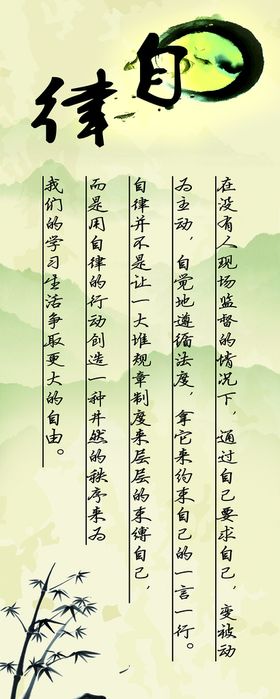 自律
在没有人现场监督的情况下，通过自己要求自己，变被动
为主动，自觉地遵循法度，拿它来约束自己的一言一行。
自律并不是让一大堆规章制度来层层的束缚自己，
而是用自律的行动创造一种井然的秩序来为
我们的学习生活争取更大的自由。